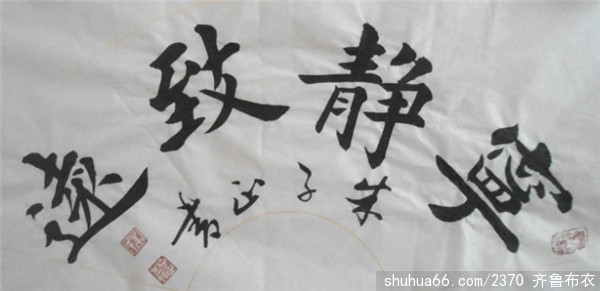 寧静致遠
朱子山书
shuhua66.com/2370 齐鲁布衣